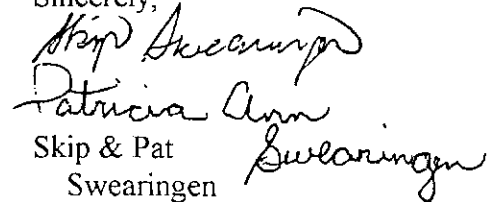 Sincerely,
Skip Swearingen
Patricia Ann
Swearingen
Skip & Pat
Swearingen